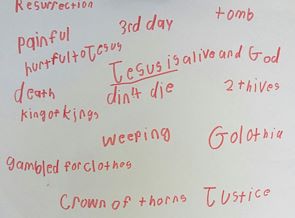 Resurrection
3rd day
tomb
painful
hurtful to Jesus
Jesus is alive and God
death
din4 die
2 thives
king of kings
weeping
Golothia
gambled for clothes
Crown of thorns
Justice